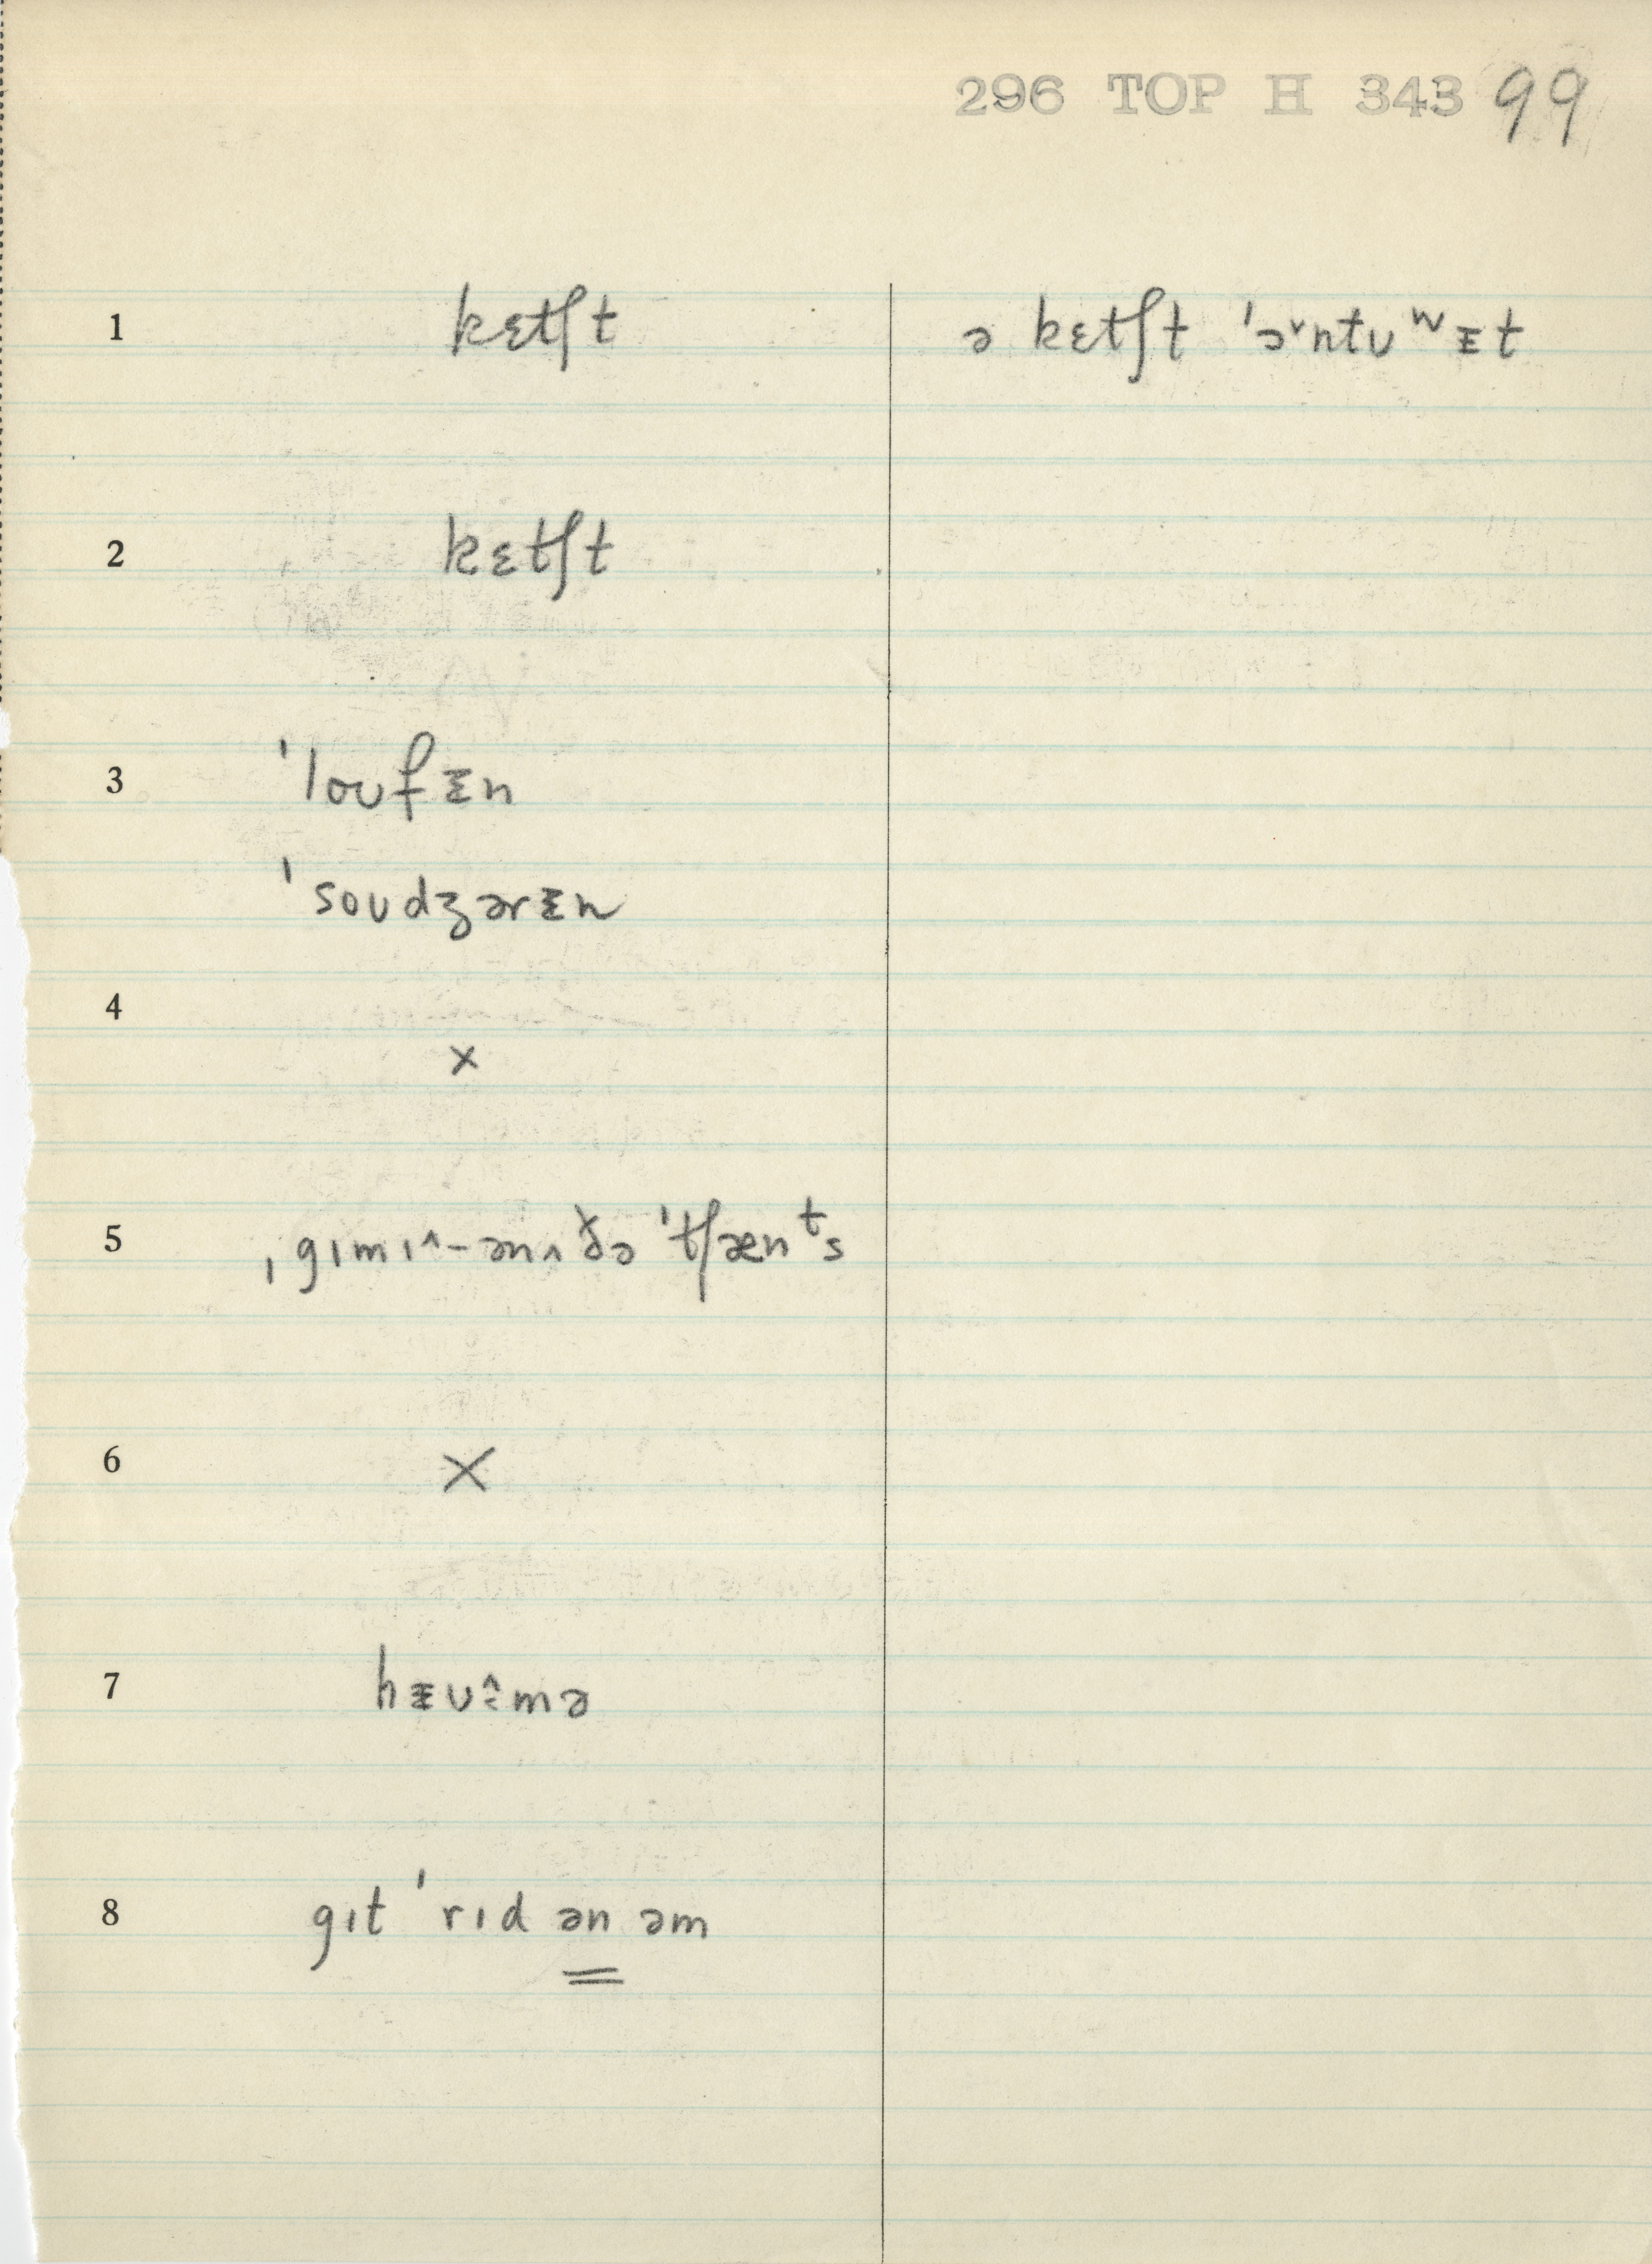 296 TOP H 343 99
1 kɛtʃt ə kɛtʃt ˈə˅ntʊʷᵻt
2 kɛtʃt
3 ˈloʊfᵻn
ˈsoʊdʒərᵻn
4 ×
5 ˌgɪmɪ^-ənʌ ðə ˈtʃænᵗs
6 ×
7 ʊ^:mə
8 gɪt ˈrɪd ən əm